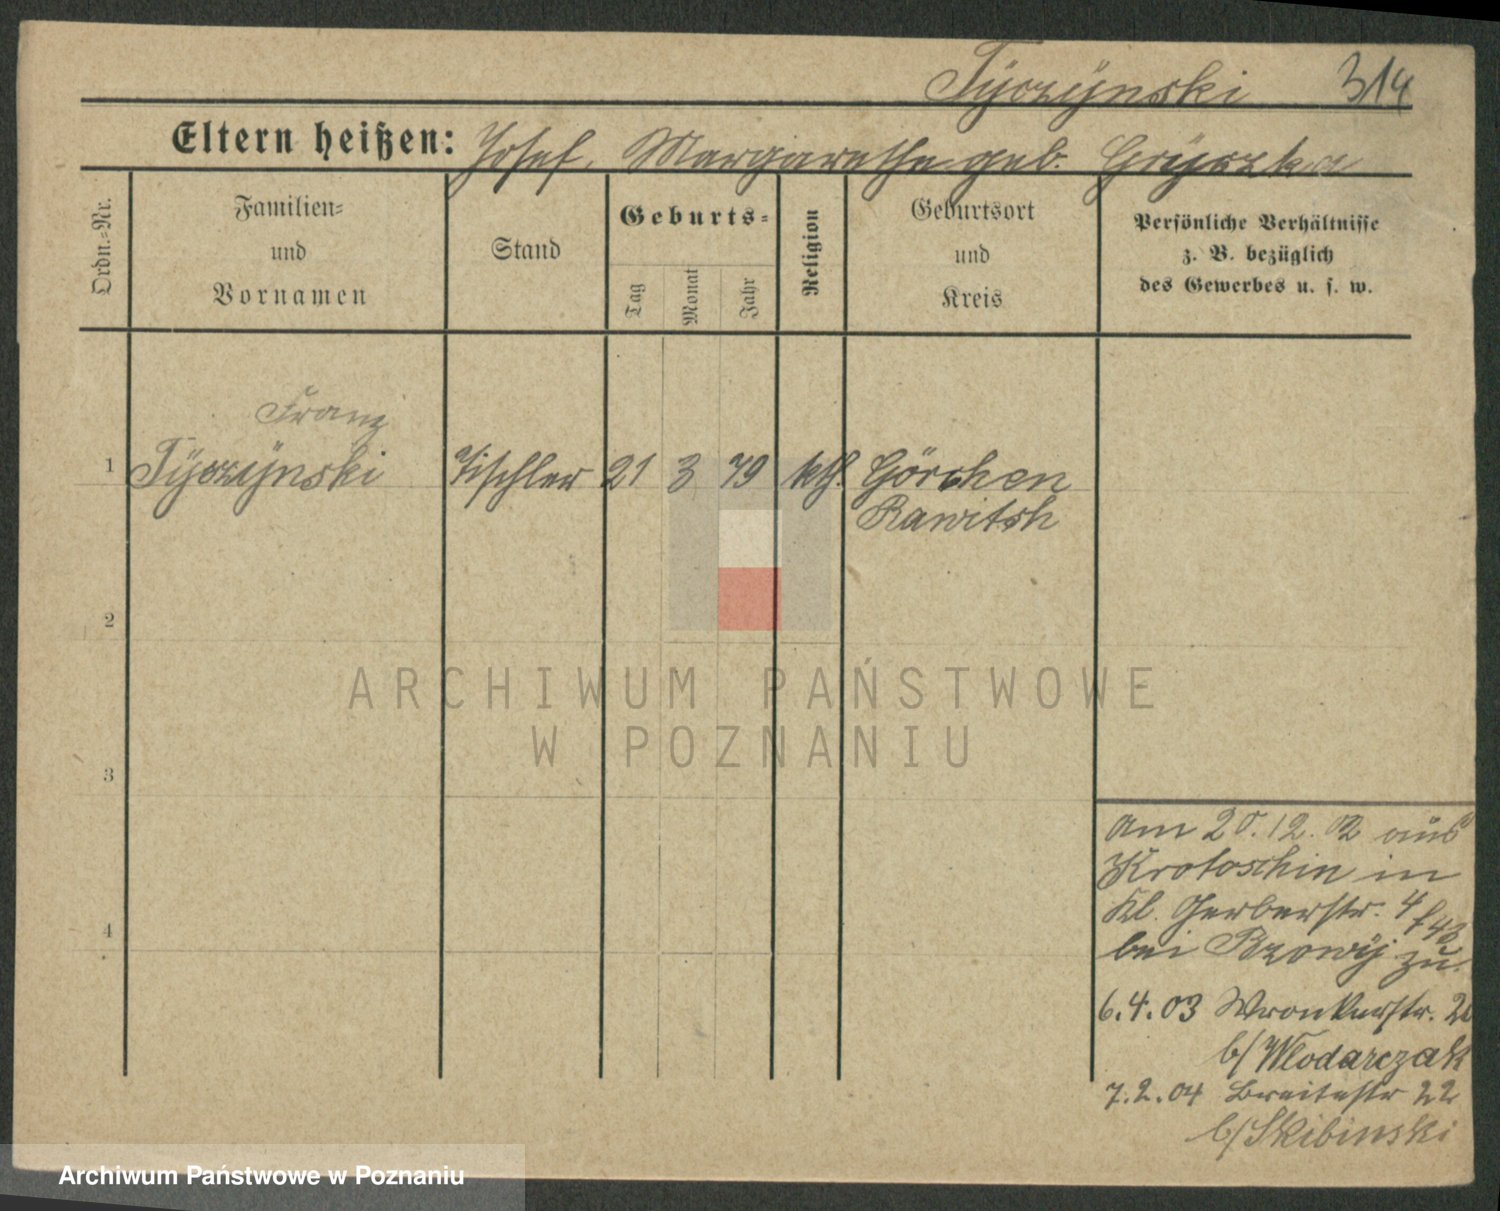 Tyczynski 314
Eltern heißen: Josef, Margarethe geb. Gryszka
Ordn.=Nr.
Familien=
und
Vornamen
Stand
Geburts=
Tag
Monat
Jahr
Religion
Geburtsort
und
Kreis
Persönliche Verhältnisse
z. B. bezüglich
des Gewerbes u. s. w.
Franz
1 Tyczynski Tischler 21 3 79 kth. Görchen
Rawitsh
2
3
4
am 20.12.02 aus
Krotoschin in
Kl. Gerberstr. 4
bei Bzowy zu.
6.4.03 Wronkerstr. 20
b/Wlodarczak
7.2.04 Breitestr 22
b/Skibinski
ARCHIWUM PAŃSTWOWE
W POZNANIU
Archiwum Państwowe w Poznaniu